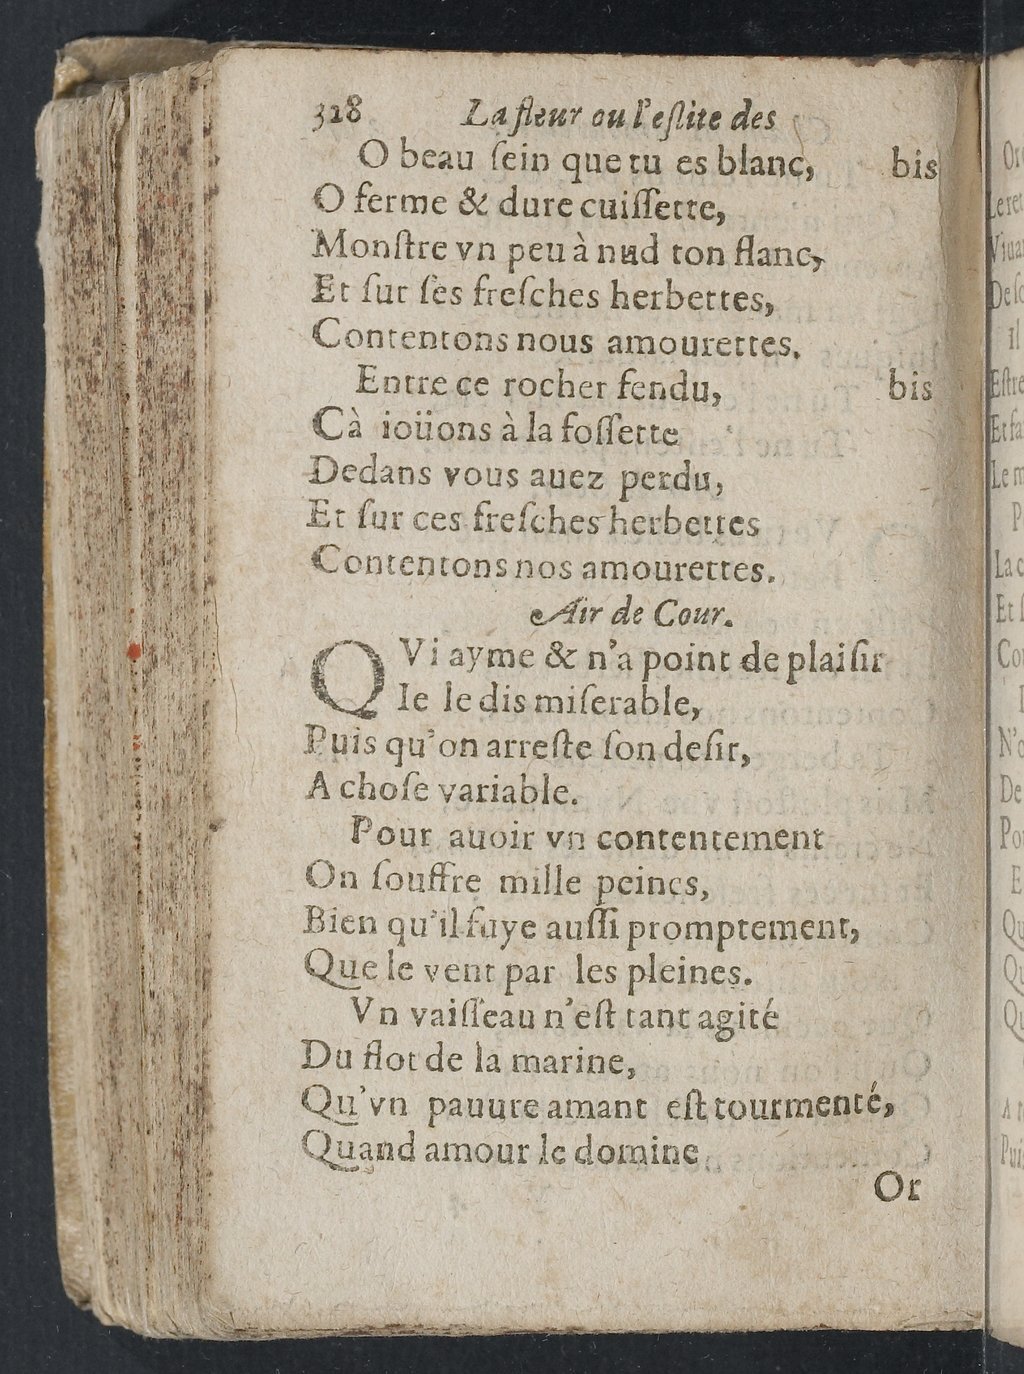 328 La fleur ou l'eslite des
O beau ſein que tu es blanc, bis
O ferme & dure cuiſſette,
Monſtre vn peu à nud ton flanc,
Et ſur ſes freſches herbettes,
Contentons nous amourettes.
Entre ce rocher fendu, bis
Cà ioüons à la foſſette
Dedans vous auez perdu,
Et ſur ces freſches herbettes
Contentons nos amourettes.
Air de Cour.
QVi ayme & n'a point de plaiſir
Ie le dis miſerable,
Puis qu'on arreſte ſon deſir,
A choſe variable.
Pour auoir vn contentement
On ſouffre mille peines,
Bien qu'il fuye auſſi promptement,
Que le vent par les pleines.
Vn vaiſſeau n'eſt tant agité
Du flot de la marine,
Qu'vn pauure amant eſt tourmenté,
Quand amour le domine
Or